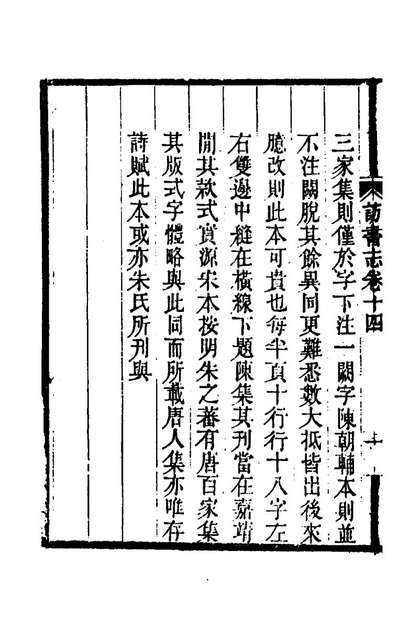 訪書志卷十四
十
三家集則僅於字下注一闕字陳朝輔本則並
不注闕脫其餘異同更難悉數大抵皆出後來
臆改則此本可貴也每半頁十行行十八字左
右雙邊中縫在橫線下題陳集其刊當在嘉靖
間其款式實源宋本按明朱之蕃有唐百家集
其版式字體略與此同而所載唐人集亦唯存
詩賦此本或亦朱氏所刊與